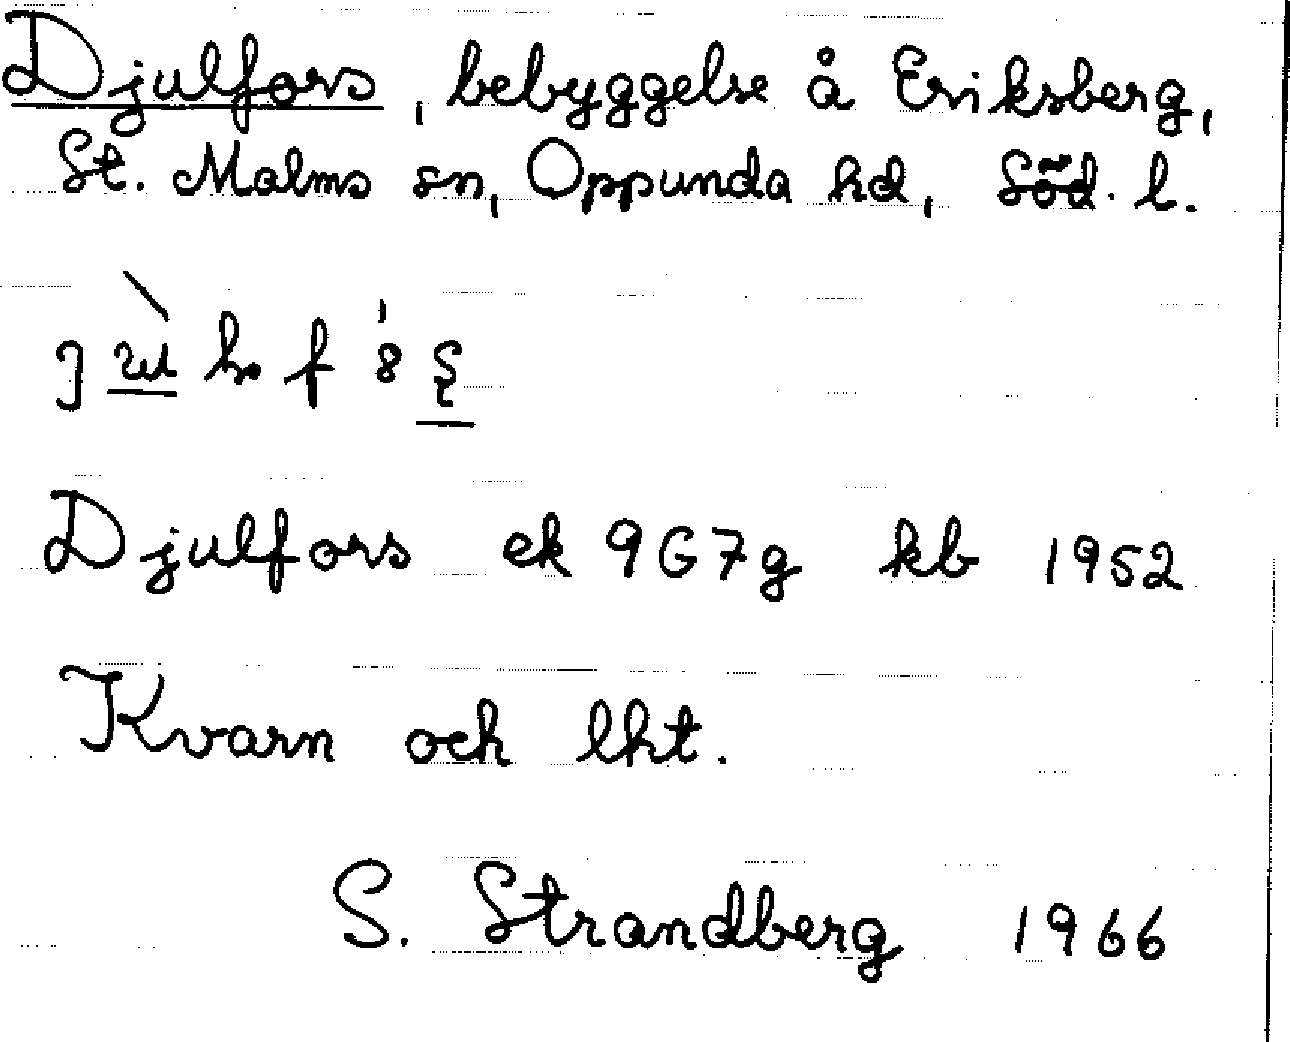 Djulfors, bebyggelse å Eriksberg,
St. Malms sn, Oppunda hd, Söd. l.
Djulfors ek 9G7g kb 1952
Kvarn och lht.
S. Strandberg 1966